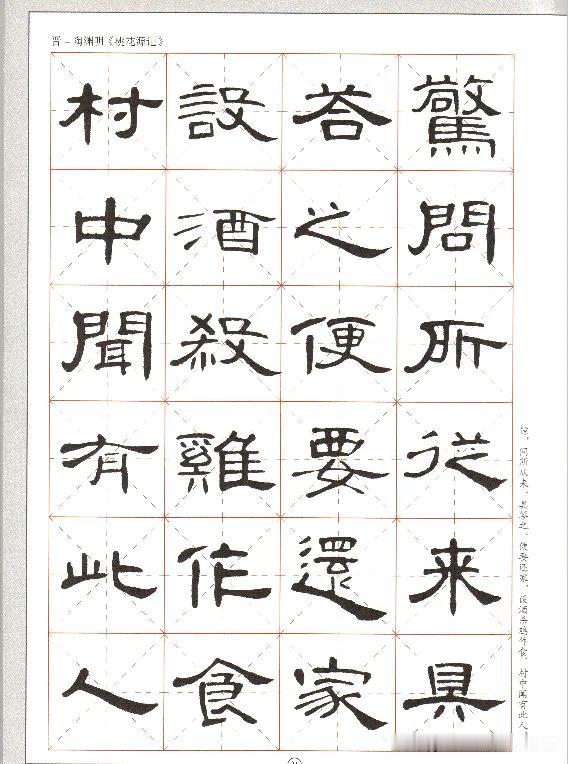 晋－陶渊明《桃花源记》
驚問所從来具
荅之便要還家
設酒殺雞作食
村中聞有此人
惊，问所从来。具答之。便要还家，设酒杀鸡作食。村中闻有此人